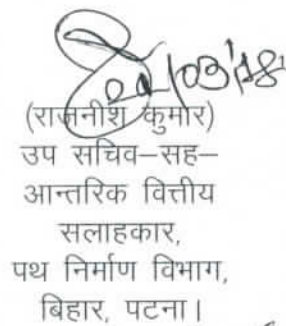 22/03/18
(राजनीश कुमार)
उप सचिव–सह–
आन्तरिक वित्तीय
सलाहकार,
पथ निर्माण विभाग,
बिहार, पटना।